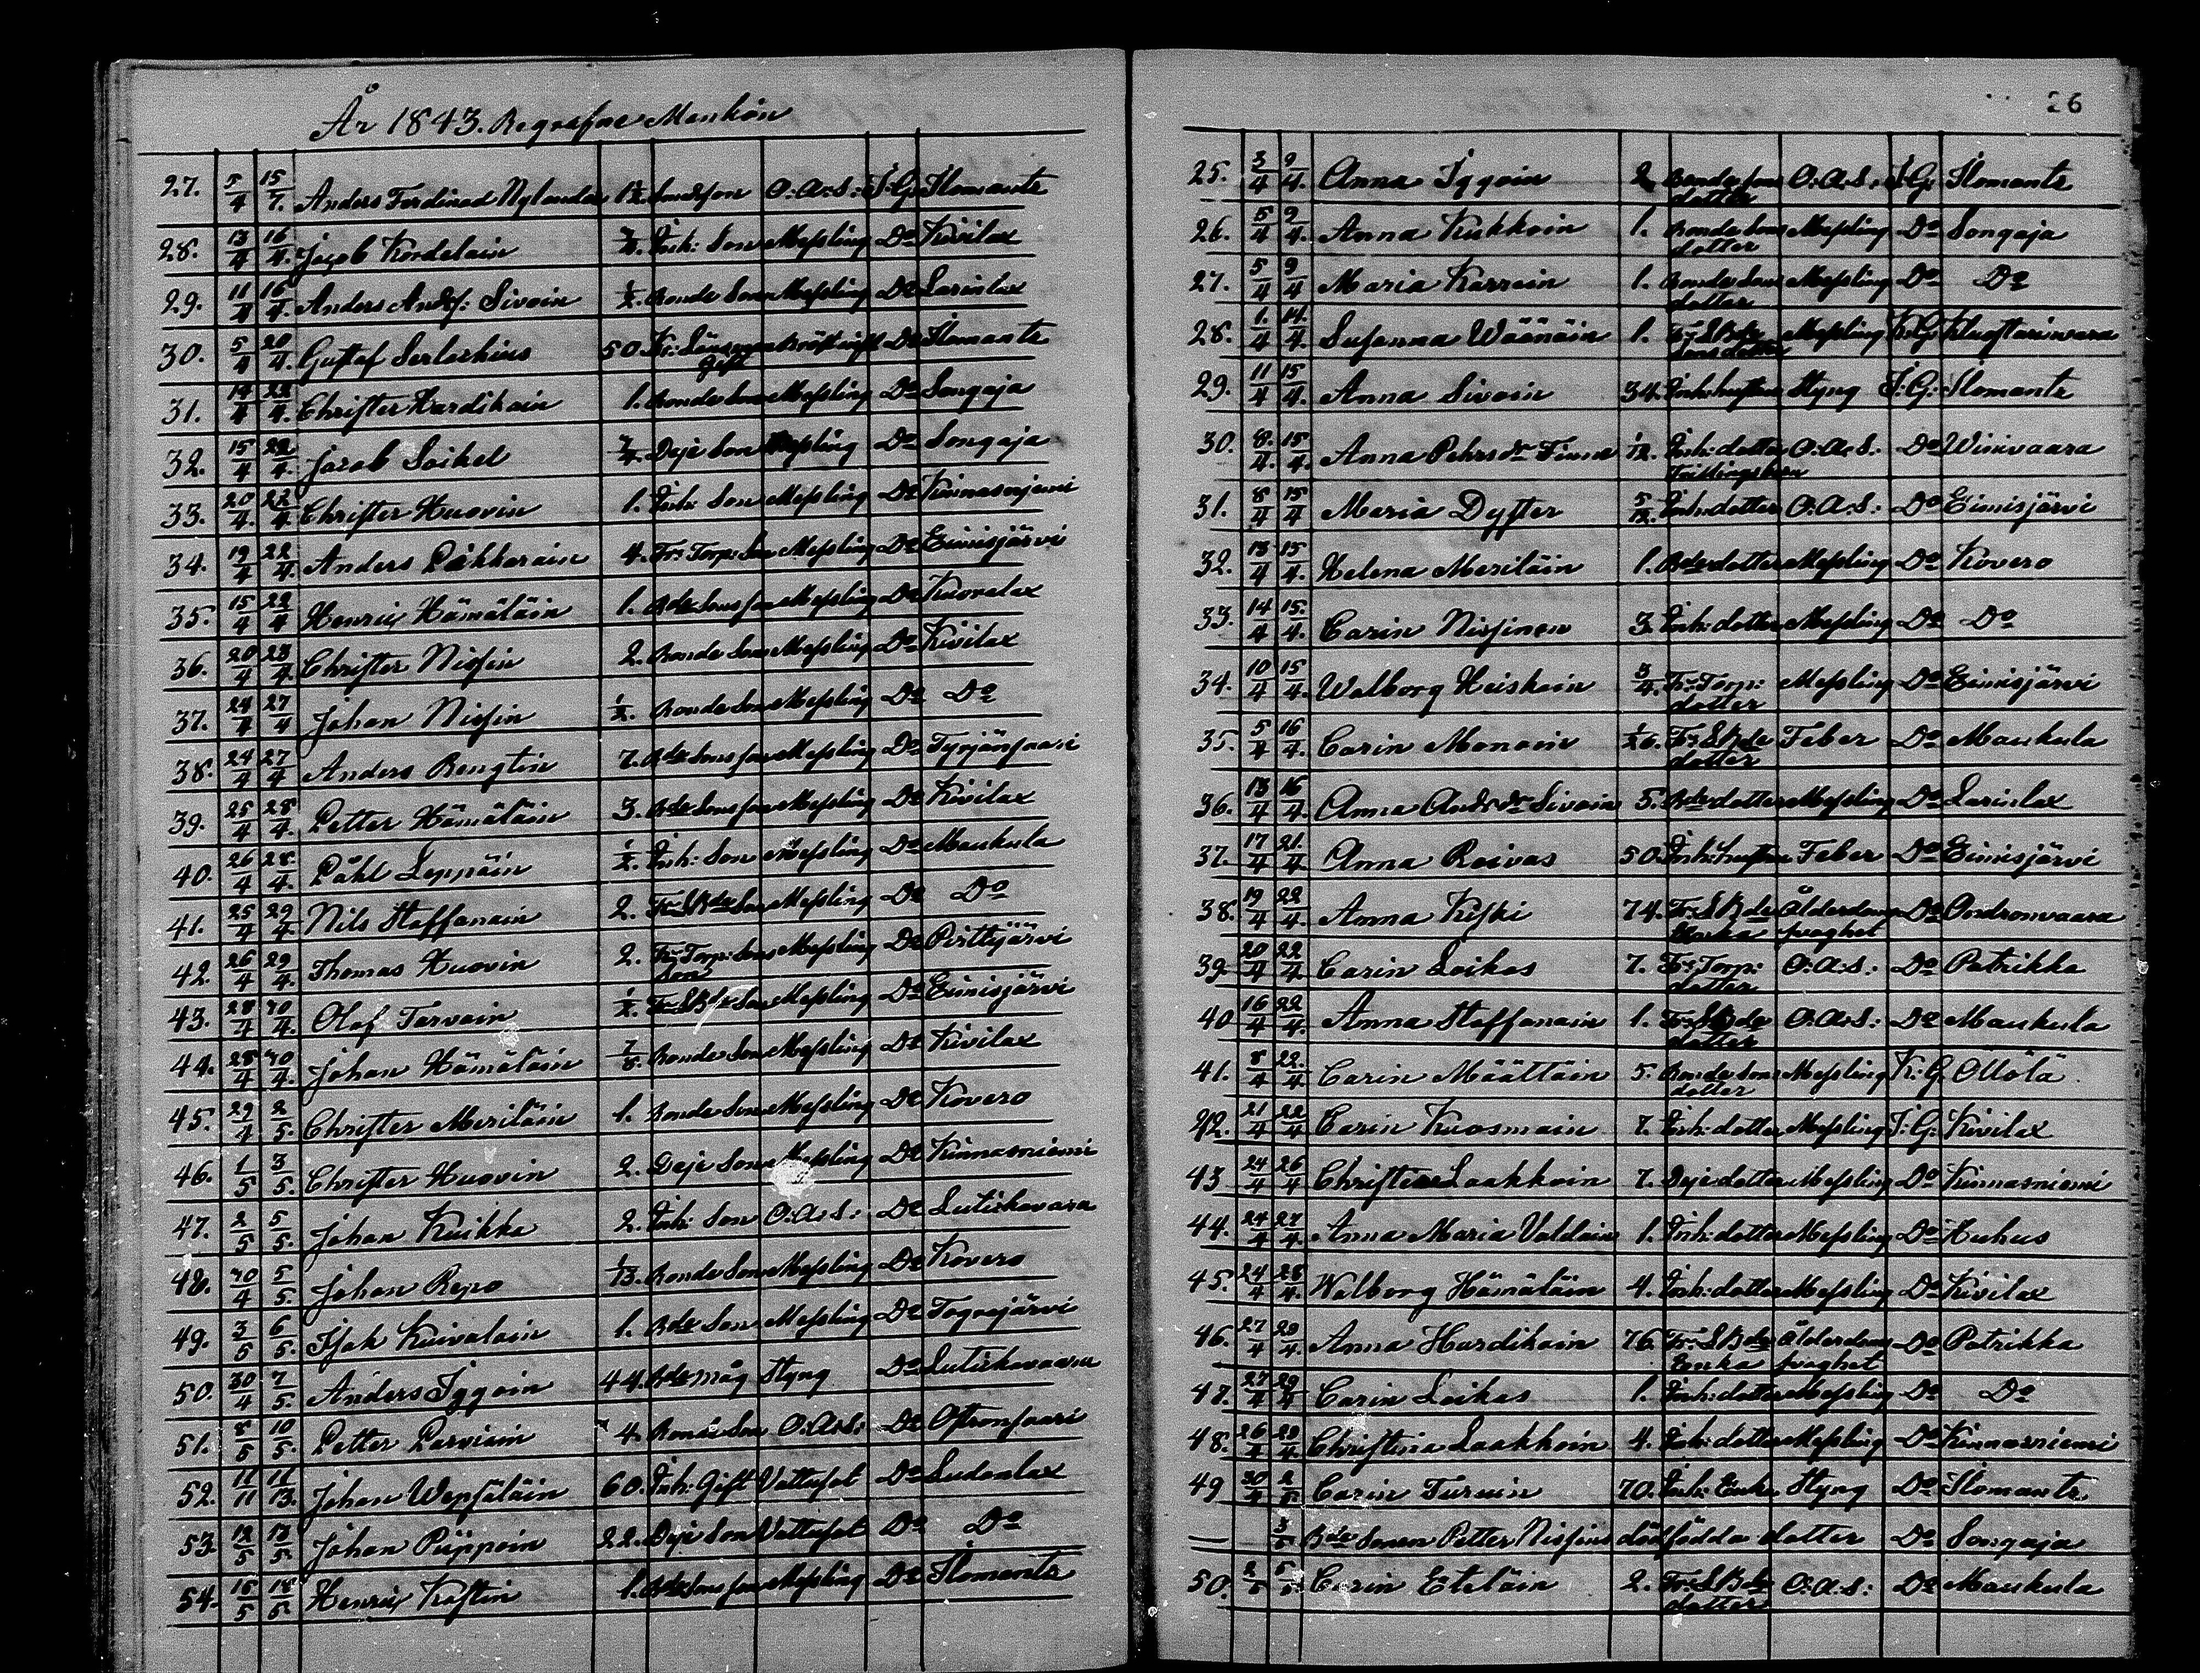 År 1843. Begrafne Mankön
27. 5/4 15/7. Anders Ferdinad Nylander 1½ Smedson O:A:S: I:G: Ilomants
28. 13/4 16/4. Jacob Kordelain Inh: Son Messling Do Kivilax
29. 11/4 16/4. Anders Andss: Sivoin ½. Bonde Son Messling Do Larinlax
30. 5/4 20/4. Gustaf Serlachius 50. Kr: Länsman Bröstinfl Do Ilomants
Gift
31. 14/4 22/4. Christer Hurdikain 1. Bonde Son Messling Do Songaja
32. 15/4 22/4. Jacob Soikel Deje Son Messling Do Songaja
33. 20/4. 22/4. Christer Huovin 1. Inh: Son Messling Do Kinnasniemi
34. 19/4 22/4. Anders Påkkarain 4. Frs Torp: Son Messling Do Eimisjärvi
35. 15/4 22/4 Henric Hämäläin 1. Bde Sons son Messling Do Kuovalax
36. 20/4 23/4. Christer Nissin 2. Bonde Son Messling Do Kivilax
37. 24/4 27/4 Johan Nissin ½. Bonde Son Messling Do Do
38. 24/4 27/4 Anders Bengtin 7. Bde Sons son Messling Do Tyrjänsaari
39. 25/4 28/4. Petter Hämäläin 3. Bde Sons son Messling Do Kivilax
40. 26/4 28/4. Påhl Leppäin ½. Inh: Son Messling Do Maukula
41. 25/4 29/4 Nils Staffanain 2. Frs SBde Son Messling Do Do
42. 26/4 29/4. Thomas Huovin 2. Frs Torp: Sons Messling Do Perttijärvi
son
43. 28/4 30/4. Olof Tarvain ½. Frs SBde Son Messling Do Eimisjärvi
44. 28/4 30/4. Johan Hämäläin 7/8. Bonde Son Messling Do Kivilax
45. 29/4 2/5. Christer Meriläin 1. Bonde Son Messling Do Kovero
46. 1/5 3/5. Christer Huovin 2. Deje Son Messling Do Kinnasniemi
47. 2/5 5/5. Johan Kuikka 2. Inh: Son O:A:S: Do Lutickavara
48. 30/4 5/5. Johan Repo 1/13. Bonde Son Messling Do Kovero
49. 3/5 6/5. Isak Kuivalain 1. Bde Son Messling Do Tograjärvi
50. 30/4 7/5. Anders Iggoin 44. Bde måg Styng Do Lutickavaara
51. 8/5 10/5. Petter Parviain 4. Bonde Son O:A:S: Do Oftronsaari
52. 11/11 11/13. Johan Wepsäläin 60. Inh: Gift Vattusot Do Sudenlax
53. 12/5 13/5 Johan Piippoin 22. Deje Son Vattusot Do Do
54. 15/5 18/5 Henric Kostin 1. Bde Sons son Messling Do Ilomants
26
25. 3/4 9/4. Anna Iggoin 2 Bonde sons O:A:S: I:G: Ilomants
dotter
26. 5/4 9/4. Anna Kukkoin 1. Bonde Sons Messling Do Songaja
dotter
27. 5/4 9/4 Maria Karrain 1. Bonde Sons Messling Do Do
dotter
28. 1/4 14/4. Susanna Wäänäin 1. Frs SBde Messling K:G:
Sons dotter
29. 11/4 15/4. Anna Sivoin 34. Inh: hustru Styng I:G: Ilomants
30. 8/4. 15/4. Anna Pehrsdr Finne 1/12. Inh: dotter O:A:S: Do Winivaara
Tvillingsbarn
31. 8/4 15/4 Maria Dyster 5/12. Inh: dotter O:A:S: Do Eimisjärvi
32. 13/4 15/4. Helena Meriläin 1. Bde dotter Messling Do Kovero
33. 14/4 15/4. Carin Nissinen 3. Inh: dotter Messling Do Do
34. 10/4 15/4. Walborg Heiskain 3/4. Frs Torp: Messling Do Eimisjärvi
dotter
35. 5/4 16/4. Carin Manain 1/26. Frs SBde Feber Do Maukula
dotter
36. 13/4 16/4. Anna Andsdr Sivoin 5. Bde dotter Messling Do Larinlax
37. 17/4 21/4. Anna Raivas 50. Inh: hustru Feber Do Eimisjärvi
38. 19/4 22/4. Anna Kiski 74. Frs SBde Ålderdoms Do Ondronvaara
Enka svaghet
39. 20/4 22/4 Carin Loikas 7. Frs Torp: O:A:S: Do Patrikka
dotter
40 16/4 22/4. Anna Staffanain 1. Frs SBde O:A:S: Do Maukula
dotter
41. 8/4 22/4 Carin Määttäin 5. Bonde Sons Messling K:G. Ollölä
dotter
42. 21/4 22/4 Carin Kuosmain 7. Inh: dotter Messling I:G: Kivilax
43 24/4 26/4 Christina Laakkoin 7. Deje dotter Messling Do Kinnasniemi
44. 24/4 27/4. Anna Maria Valdain 1. Inh: dotter Messling Do Huhus
45. 24/4 28/4. Walborg Hämäläin 4. Inh: dotter Messling Do Kivilax
46. 27/4 29/4. Anna Hurdikain 76. Frs SBde Ålderdoms Do Patrikka
Enka svaghet
47. 27/4 29/4 Carin Loikas 1. Inh: dotter Messling Do Do
48. 26/4 29/4. Christina Laakkoin 4. Inh: dotter Messling Do Kinnasniemi
49 30/4 2/5. Carin Turuin 70. Inh: Enka Styng Do Ilomants
— 3/5 Bde Sonen Petter Nissins dödfödda dotter Do Songaja
50. 2/5 5/5. Carin Eteläin 2. Frs SBde O:A:S: Do Maukula
dotter